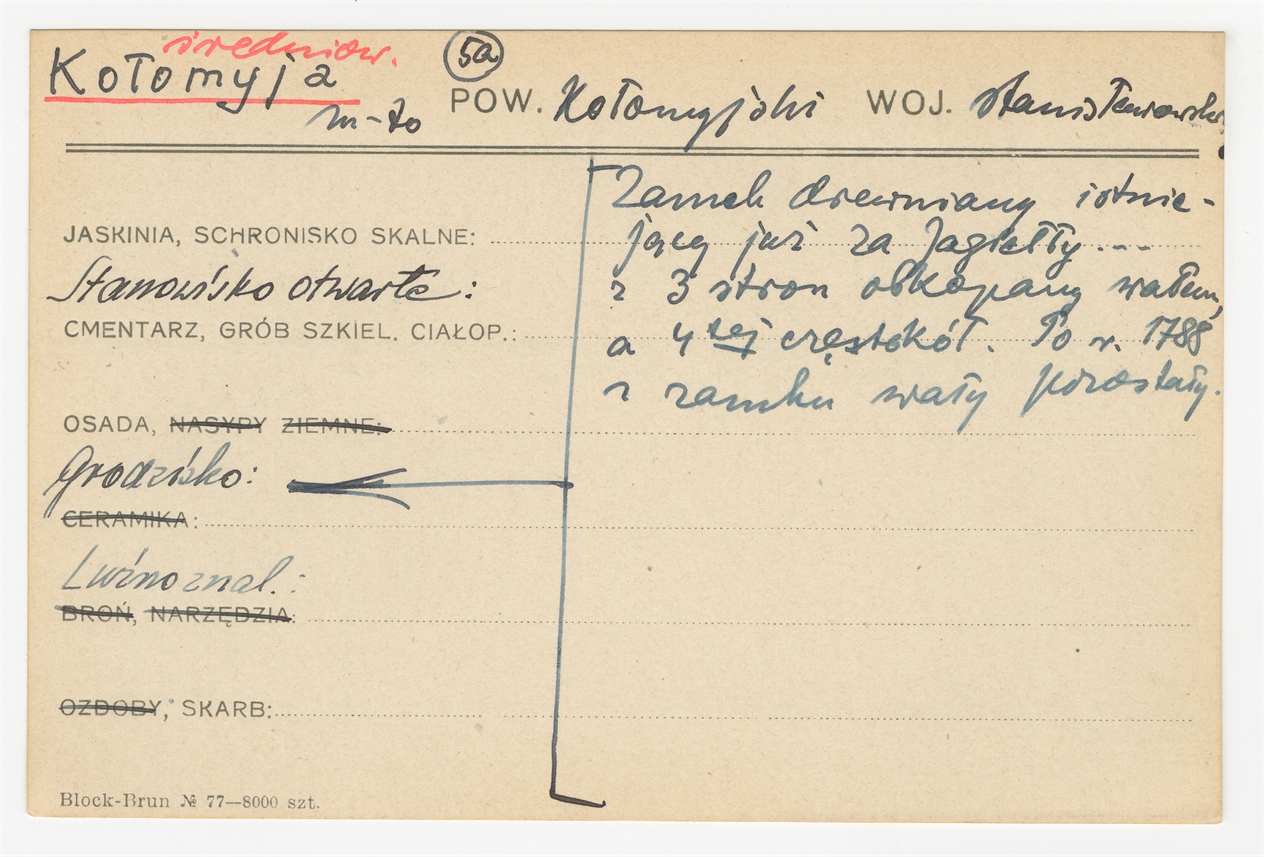 średniow.
Kołomyja
m-to
5a
POW. Kołomyjski WOJ. Stanisławowski
Zamek drewniany istnie-
jący już za Jagiełły...
JASKINIA, SCHRONISKO SKALNE:
z 3 stron obkopany wałem,
Stanowisko otwarte:
a 4tej częstokół. Po r. 1788
CMENTARZ, GRÓB SZKIEL. CIAŁOP.:
z zamku wały pozostały.
OSADA, NASYPY ZIEMNE:
Grodzisko:
CERAMIKA:
Luźno znal.:
BROŃ, NARZĘDZIA:
OZDOBY, SKARB:
Block-Brun № 77—8000 szt.